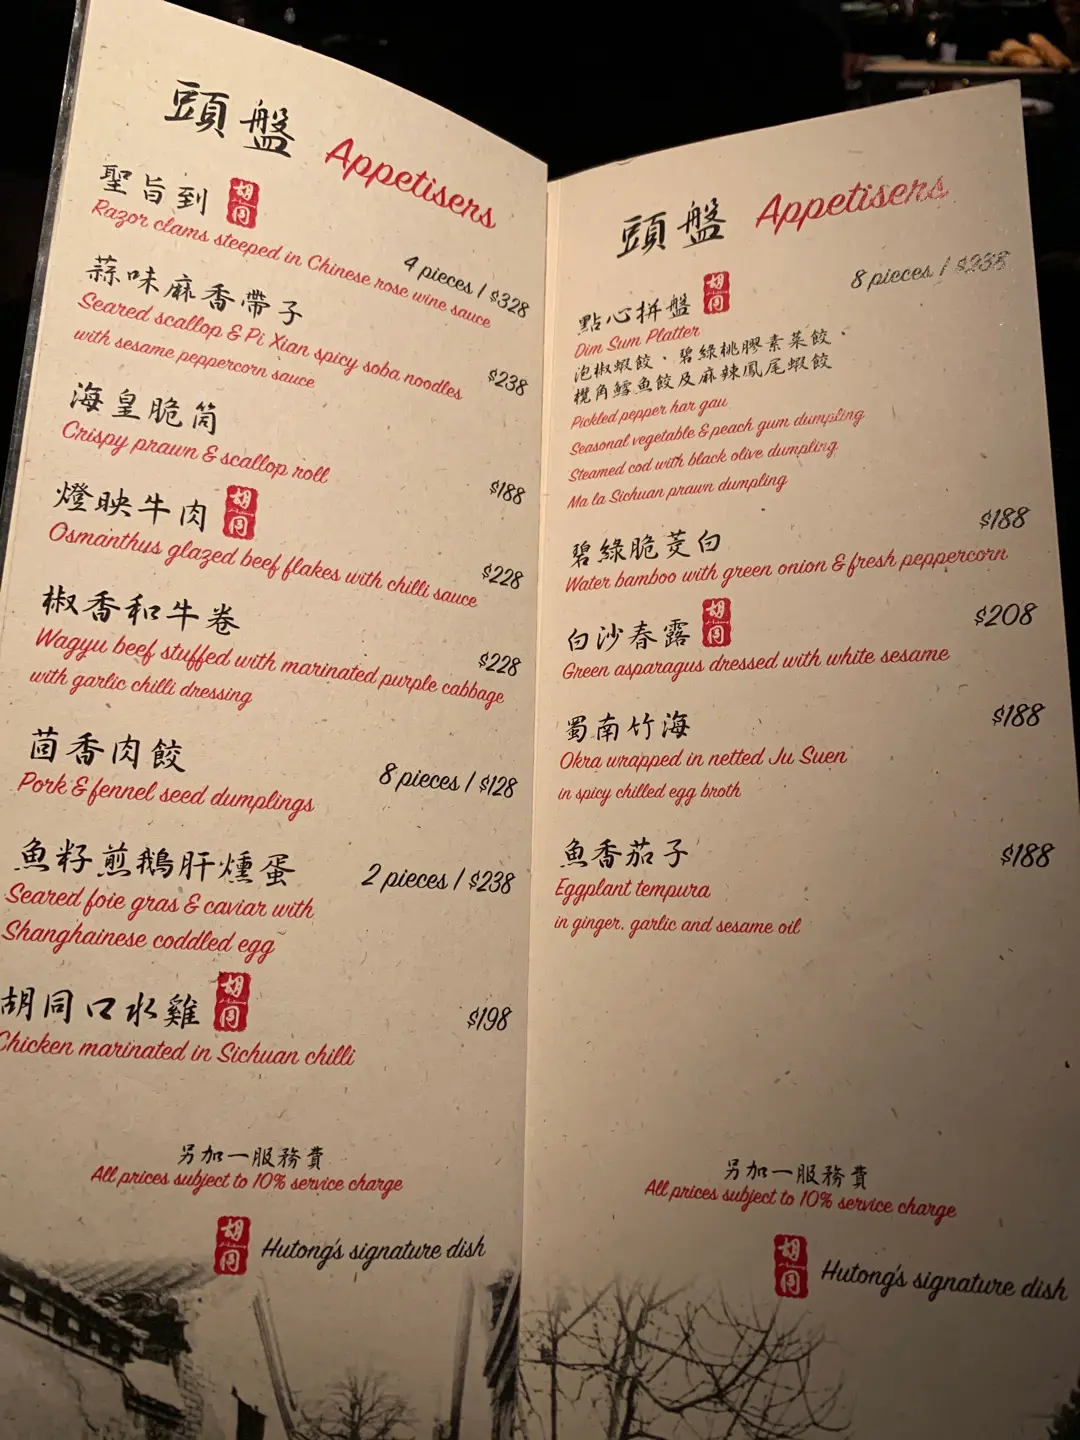 頭盤 Appetisers
聖旨到 胡同
4 pieces / $328
Razor clams steeped in Chinese rose wine sauce
蒜味麻香帶子
Seared scallop & Pi Xian spicy soba noodles
$238
with sesame peppercorn sauce
海皇脆筒
Crispy prawn & scallop roll
$188
燈映牛肉 胡同
Osmanthus glazed beef flakes with chilli sauce
$228
椒香和牛卷
Wagyu beef stuffed with marinated purple cabbage
$228
with garlic chilli dressing
茴香肉餃
8 pieces / $128
Pork & fennel seed dumplings
魚籽煎鵝肝燻蛋
2 pieces / $238
Seared foie gras & caviar with
Shanghainese coddled egg
胡同口水雞 胡同
$198
Chicken marinated in Sichuan chilli
另加一服務費
All prices subject to 10% service charge
胡同 Hutong's signature dish
頭盤 Appetisers
8 pieces / $238
點心拼盤 胡同
Dim Sum Platter
泡椒蝦餃、碧綠桃膠素菜餃、
欖角鱈魚餃及麻辣鳳尾蝦餃
Pickled pepper har gau
Seasonal vegetable & peach gum dumpling
Steamed cod with black olive dumpling
Ma la Sichuan prawn dumpling
碧綠脆茭白
$188
Water bamboo with green onion & fresh peppercorn
白沙春露 胡同
$208
Green asparagus dressed with white sesame
蜀南竹海
$188
Okra wrapped in netted Ju Suen
in spicy chilled egg broth
魚香茄子
$188
Eggplant tempura
in ginger, garlic and sesame oil
另加一服務費
All prices subject to 10% service charge
胡同 Hutong's signature dish